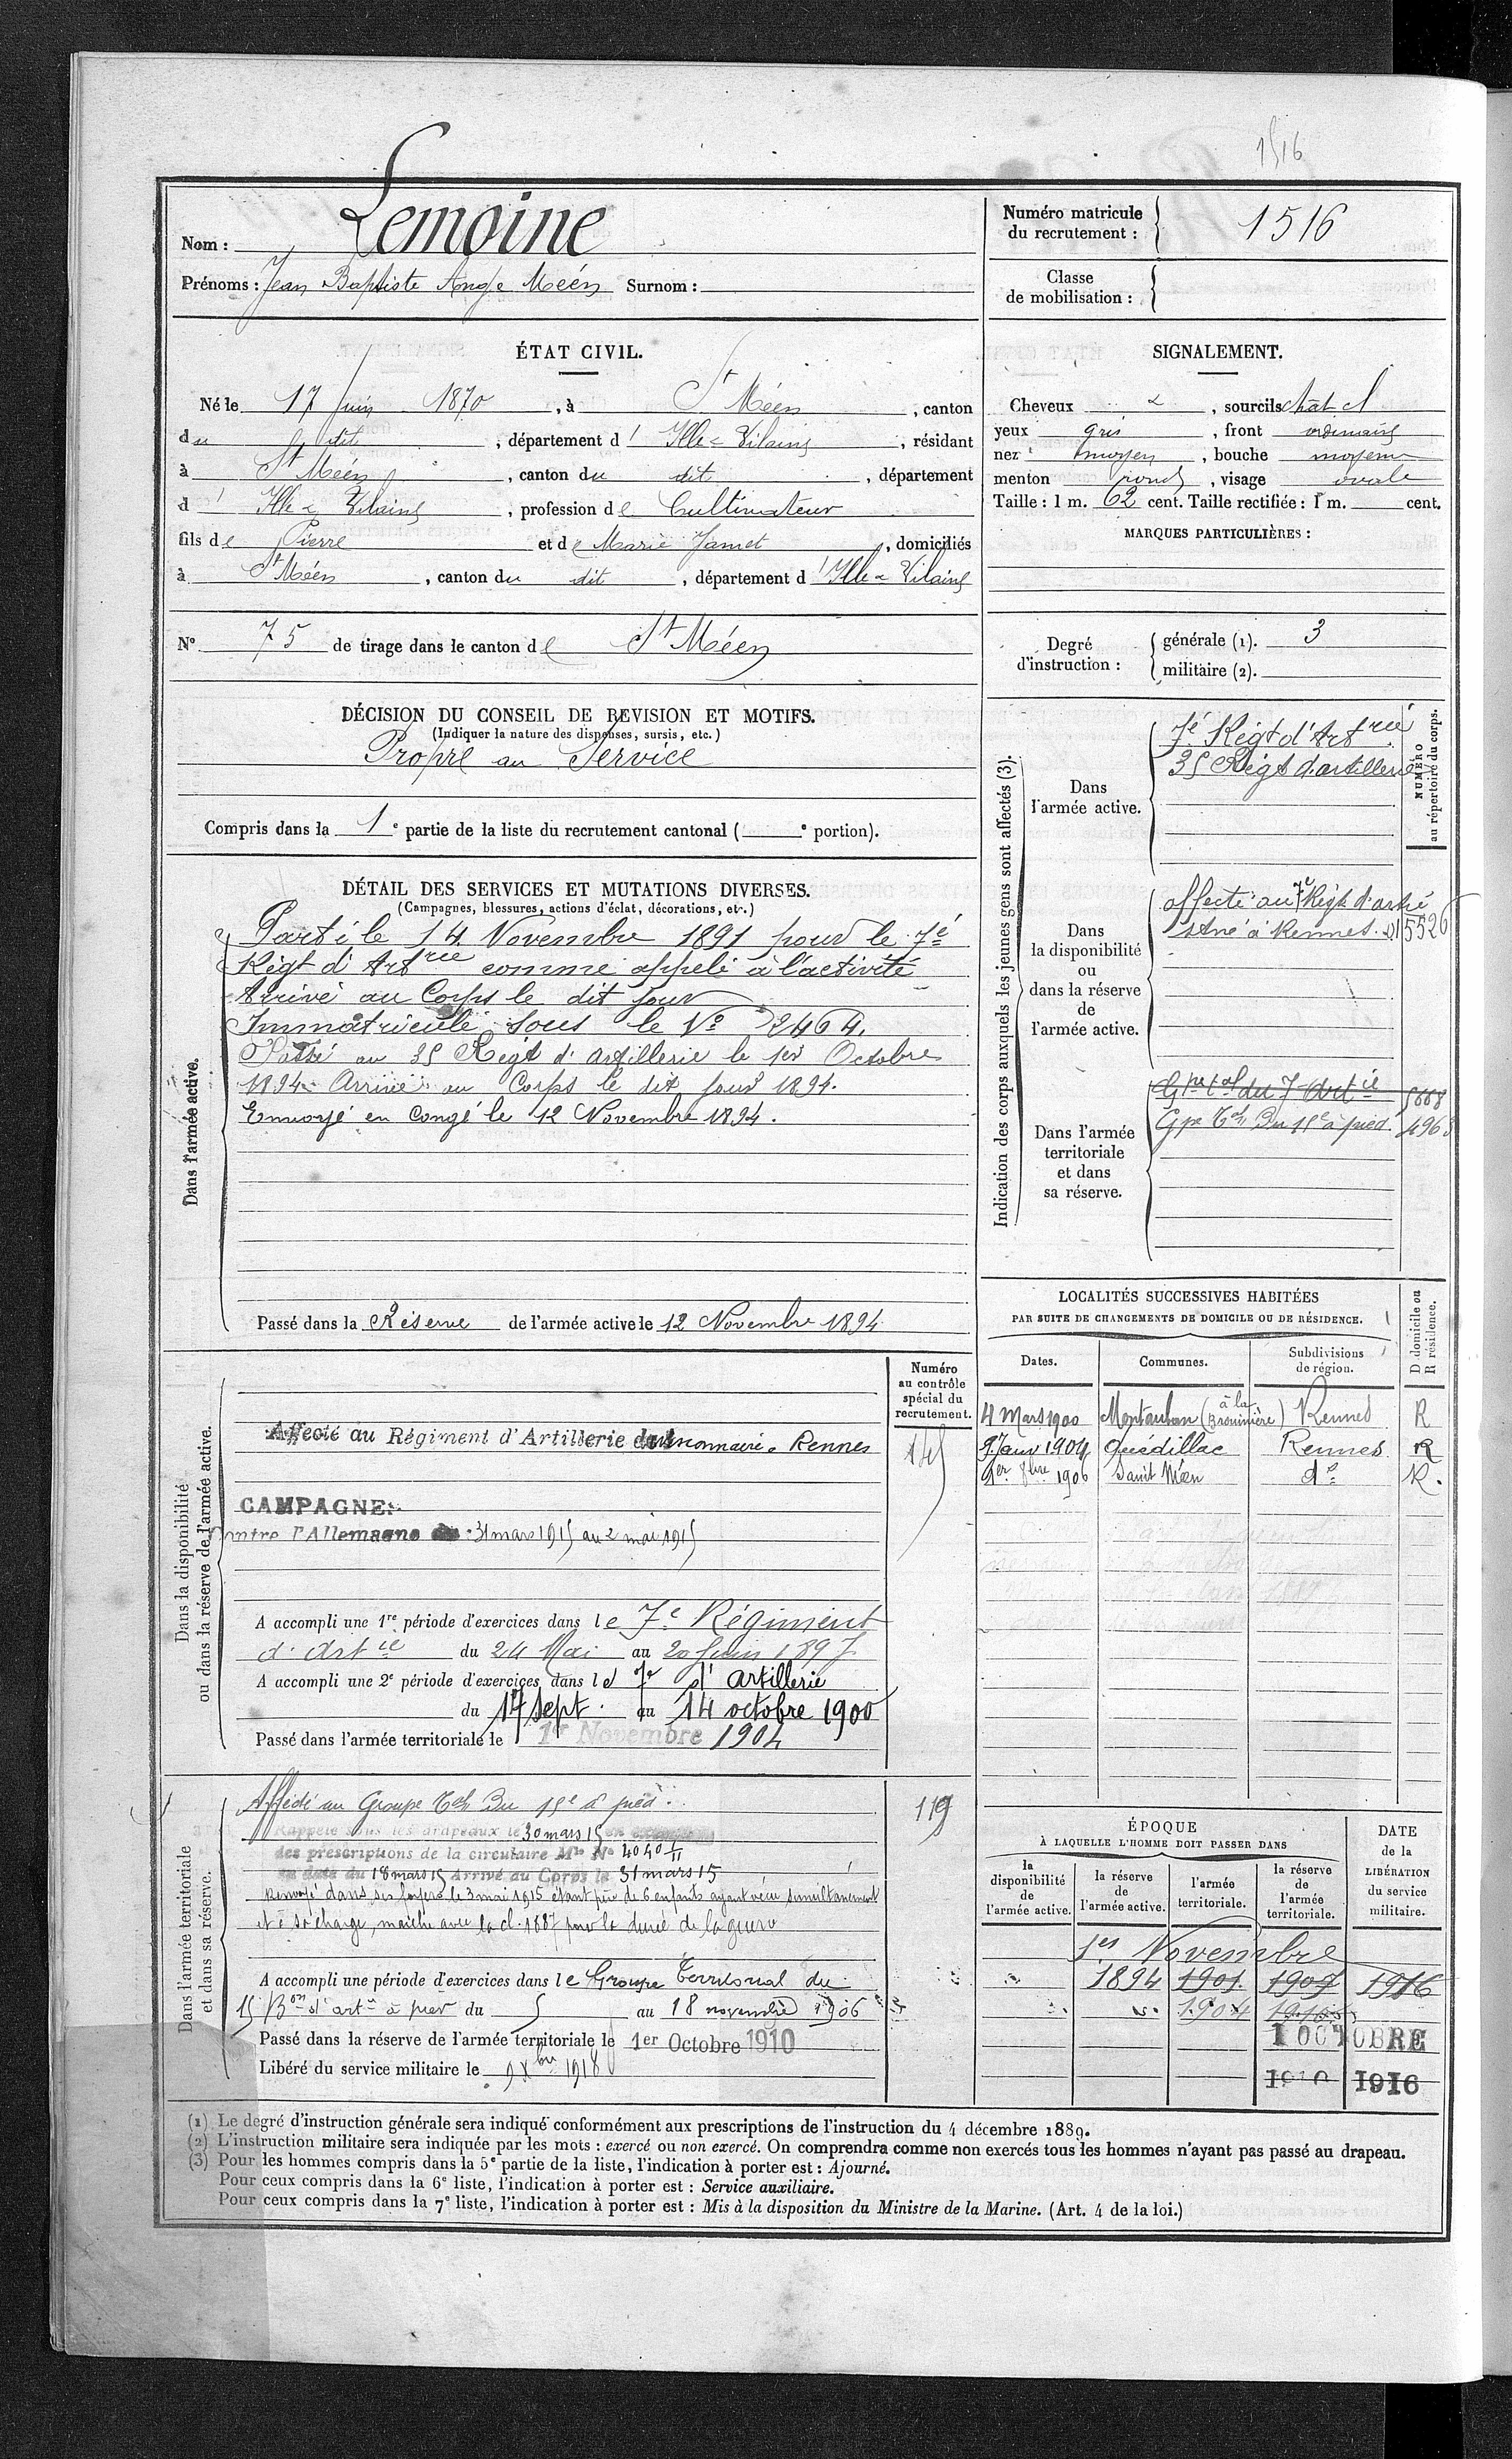 1516
Nom : Lemoine
Prénoms : Jean Baptiste Ange Méén Surnom :
Numéro matricule du recrutement : 1516
Classe de mobilisation :
ÉTAT CIVIL.
Né le 17 Juin 1870, à St Méen, canton
du dit, département d'Ille & Vilaine, résidant
à St Méen, canton du dit, département
d'Ille & Vilaine, profession de Cultivateur
fils de Pierre et de Marie Jamet, domiciliés
à St Méen, canton du dit, département d'Ille & Vilaine
N° 75 de tirage dans le canton de St Méen
SIGNALEMENT.
Cheveux &, sourcils chât cl
yeux gris, front ordinaire
nez moyen, bouche moyenne
menton rond, visage ovale
Taille : 1 m. 62 cent. Taille rectifiée : 1 m. cent.
MARQUES PARTICULIÈRES :
Degré d'instruction : générale (1). 3
militaire (2).
DÉCISION DU CONSEIL DE REVISION ET MOTIFS.
(Indiquer la nature des dispenses, sursis, etc.)
Propre au Service
Compris dans la 1e partie de la liste du recrutement cantonal ( e portion).
DÉTAIL DES SERVICES ET MUTATIONS DIVERSES.
(Campagnes, blessures, actions d'éclat, décorations, etc.)
Dans l'armée active.
Parti le 14 Novembre 1891 pour le 7é
Régt d'Artrie comme appelé à l'activité
Arrivé au Corps le dit jour
Immatriculé sous le N° 2464.
Passé au 35 Régt d'artillerie le 1er Octobre
1894. Arrivé au Corps le dit jour 1894.
Envoyé en Congé le 12 Novembre 1894.
Passé dans la Réserve de l'armée active le 12 Novembre 1894
Indication des corps auxquels les jeunes gens sont affectés (3).
NUMÉRO au répertoire du corps.
Dans l'armée active.
7é Régt d'Artrie
35 Régt d'artillerie
Dans la disponibilité ou dans la réserve de l'armée active.
affecté au 7e Régt d'artie
stné à Rennes. 5526
Dans l'armée territoriale et dans sa réserve.
Gpe tal du 7 Artie 5668
Gpe Tal Du 15e à pied. 496
LOCALITÉS SUCCESSIVES HABITÉES
PAR SUITE DE CHANGEMENTS DE DOMICILE OU DE RÉSIDENCE.
Dates. Communes. Subdivisions de région. D domicile ou R résidence.
4 Mars 1900 Montauban (à la Brouinière) Rennes R
9 Janv 1904 Quédillac Rennes R
1er 1906 Saint Méen do R.
Dans la disponibilité ou dans la réserve de l'armée active.
Numéro au contrôle spécial du recrutement.
Affecté au Régiment d'Artillerie Rennes 145
CAMPAGNES
Contre l'Allemagne du 31 mars 1915 au 2 mai 1915
A accompli une 1re période d'exercices dans le 7e Régiment
d'Artie du 24 Mai au 20 Juin 1897
A accompli une 2e période d'exercices dans le 7e d'Artillerie
du 17 Sept. au 14 octobre 1900
Passé dans l'armée territoriale le 1er Novembre 1904
Dans l'armée territoriale et dans sa réserve.
Affecté au Groupe Tal Du 15e à pied. 119
Rappelé sous les drapeaux le 30 mars 15 en
des prescriptions de la circulaire Mlle N° 4040
en date du 18 mars 15 Arrivé au Corps le 31 mars 15
Renvoyé dans ses foyers le 3 mai 1915 étant père de 6 enfants ayant vécu simultanément
et à sa charge, marche avec la cl. 1887 pour la durée de la guerre
A accompli une période d'exercices dans le Groupe Territorial du
15 Bon d'artie à pied du 5 au 18 novembre 1906
Passé dans la réserve de l'armée territoriale le 1er Octobre 1910
Libéré du service militaire le 9 Xbre 1918
ÉPOQUE
À LAQUELLE L'HOMME DOIT PASSER DANS
DATE de la LIBÉRATION du service militaire.
la disponibilité de l'armée active. la réserve de l'armée active. l'armée territoriale. la réserve de l'armée territoriale.
1er Novembre
1894 1901 1907 1916
1904
1 OCTOBRE
1910 1916
(1) Le degré d'instruction générale sera indiqué conformément aux prescriptions de l'instruction du 4 décembre 1889.
(2) L'instruction militaire sera indiquée par les mots : exercé ou non exercé. On comprendra comme non exercés tous les hommes n'ayant pas passé au drapeau.
(3) Pour les hommes compris dans la 5e partie de la liste, l'indication à porter est : Ajourné.
Pour ceux compris dans la 6e liste, l'indication à porter est : Service auxiliaire.
Pour ceux compris dans la 7e liste, l'indication à porter est : Mis à la disposition du Ministre de la Marine. (Art. 4 de la loi.)